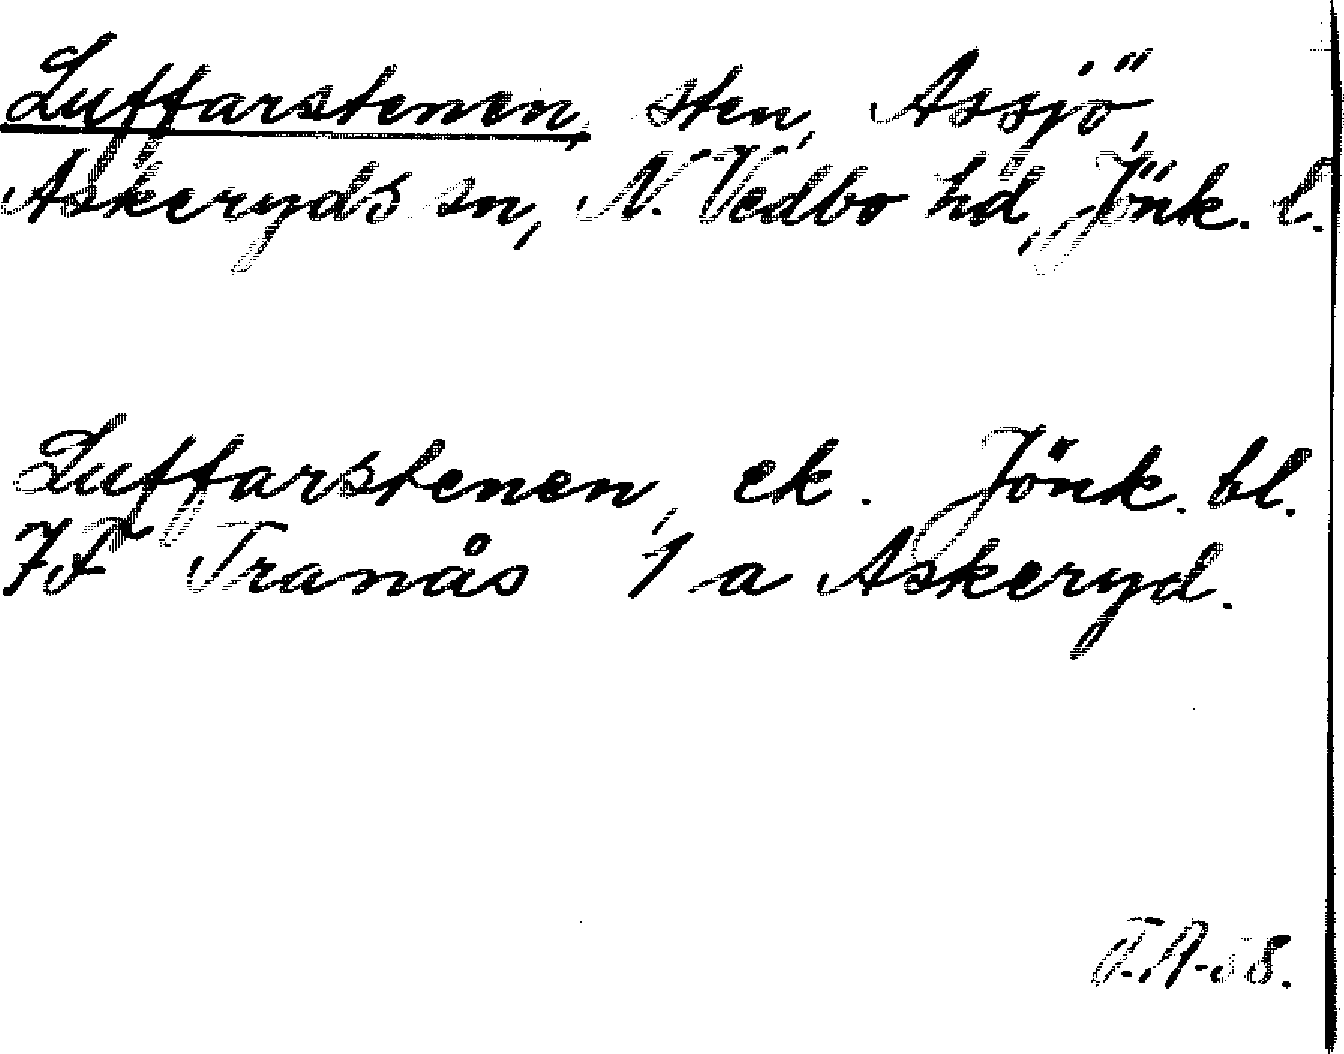 Luffarstenen, sten, Assjö,
Askeryds sn, N. Vedbo hd, Jönk. l.
Luffarstenen, ek. Jönk. bl.
7F Tranås 1 a Askeryd.